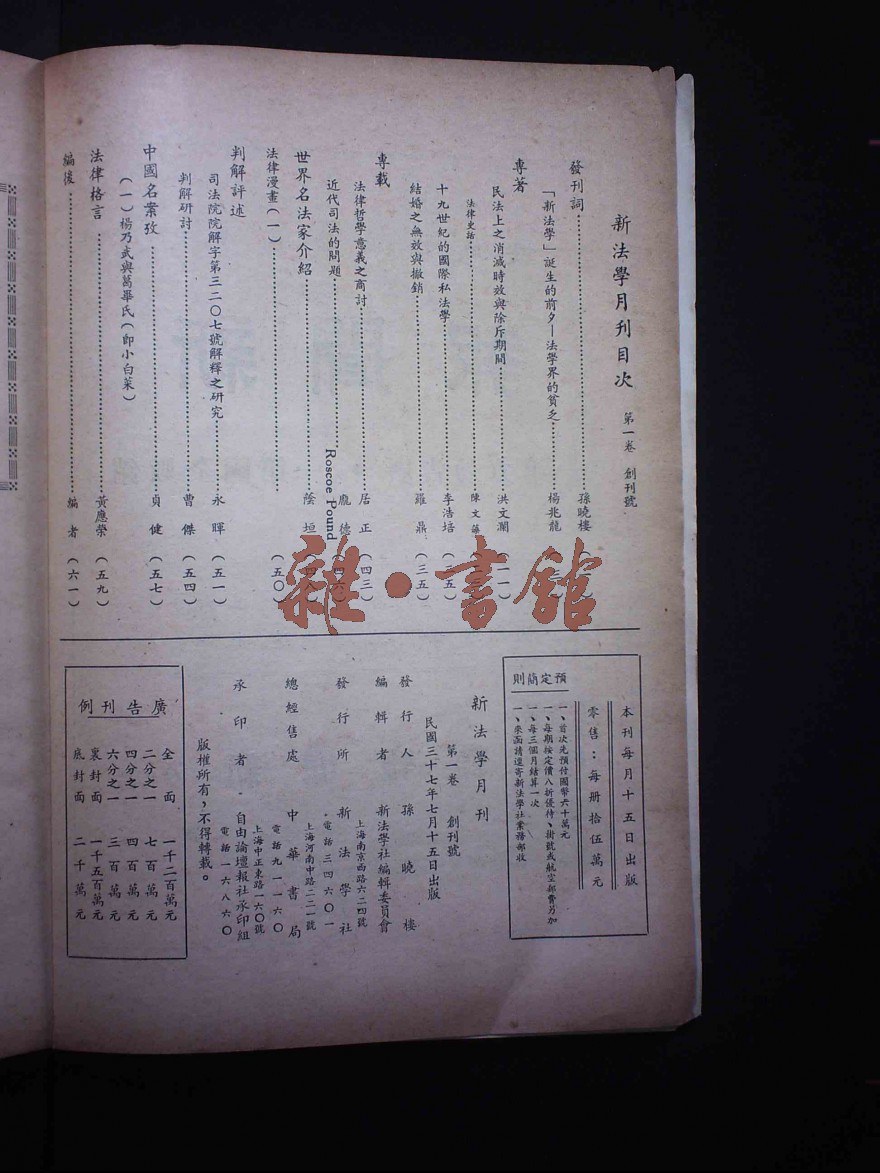 新法學月刊目次 第一卷 創刊號
發刊詞 孫曉樓
專著
「新法學」誕生的前夕—法學界的貧乏 楊兆龍
民法上之消滅時效與除斥期間 洪文瀾
法律史話 陳文藻
十九世紀的國際私法學 李浩培
結婚之無效與撤銷 羅鼎（三五）
專載
法律哲學意義之商討 居正（四三）
近代司法的問題 Roscoe Pound 龐德
世界名法家介紹 蔭垣
法律漫畫（一） （五〇）
判解評述
司法院院解字第三二〇七號解釋之研究 永暉（五一）
判解研討 曹傑（五四）
中國名案攷 貞健（五七）
（一）楊乃武與葛畢氏（即小白菜）
法律格言 黃應榮（五九）
編後 編者（六一）
雜·書館
本刊每月十五日出版
零售：每冊拾伍萬元
預定簡則
一、首次先預付國幣六十萬元
一、每期按定價八折優待、掛號或航空郵費另加
一、每三個月結算一次
一、來函請逕寄新法學社業務部收
新法學月刊
第一卷 創刊號
民國三十七年七月十五日出版
發行人 孫曉樓
編輯者 新法學社編輯委員會
上海南京西路六二四號
發行所 新法學社
電話三四六〇一
上海河南中路二二一號
總經售處 中華書局
電話九一一六〇
上海中正東路一六〇號
承印者 自由論壇報社承印組
電話一六八六〇
版權所有，不得轉載。
廣告刊例
全面 一千二百萬元
二分之一 七百萬元
四分之一 四百萬元
六分之一 三百萬元
裏封面 一千五百萬元
底封面 二千萬元